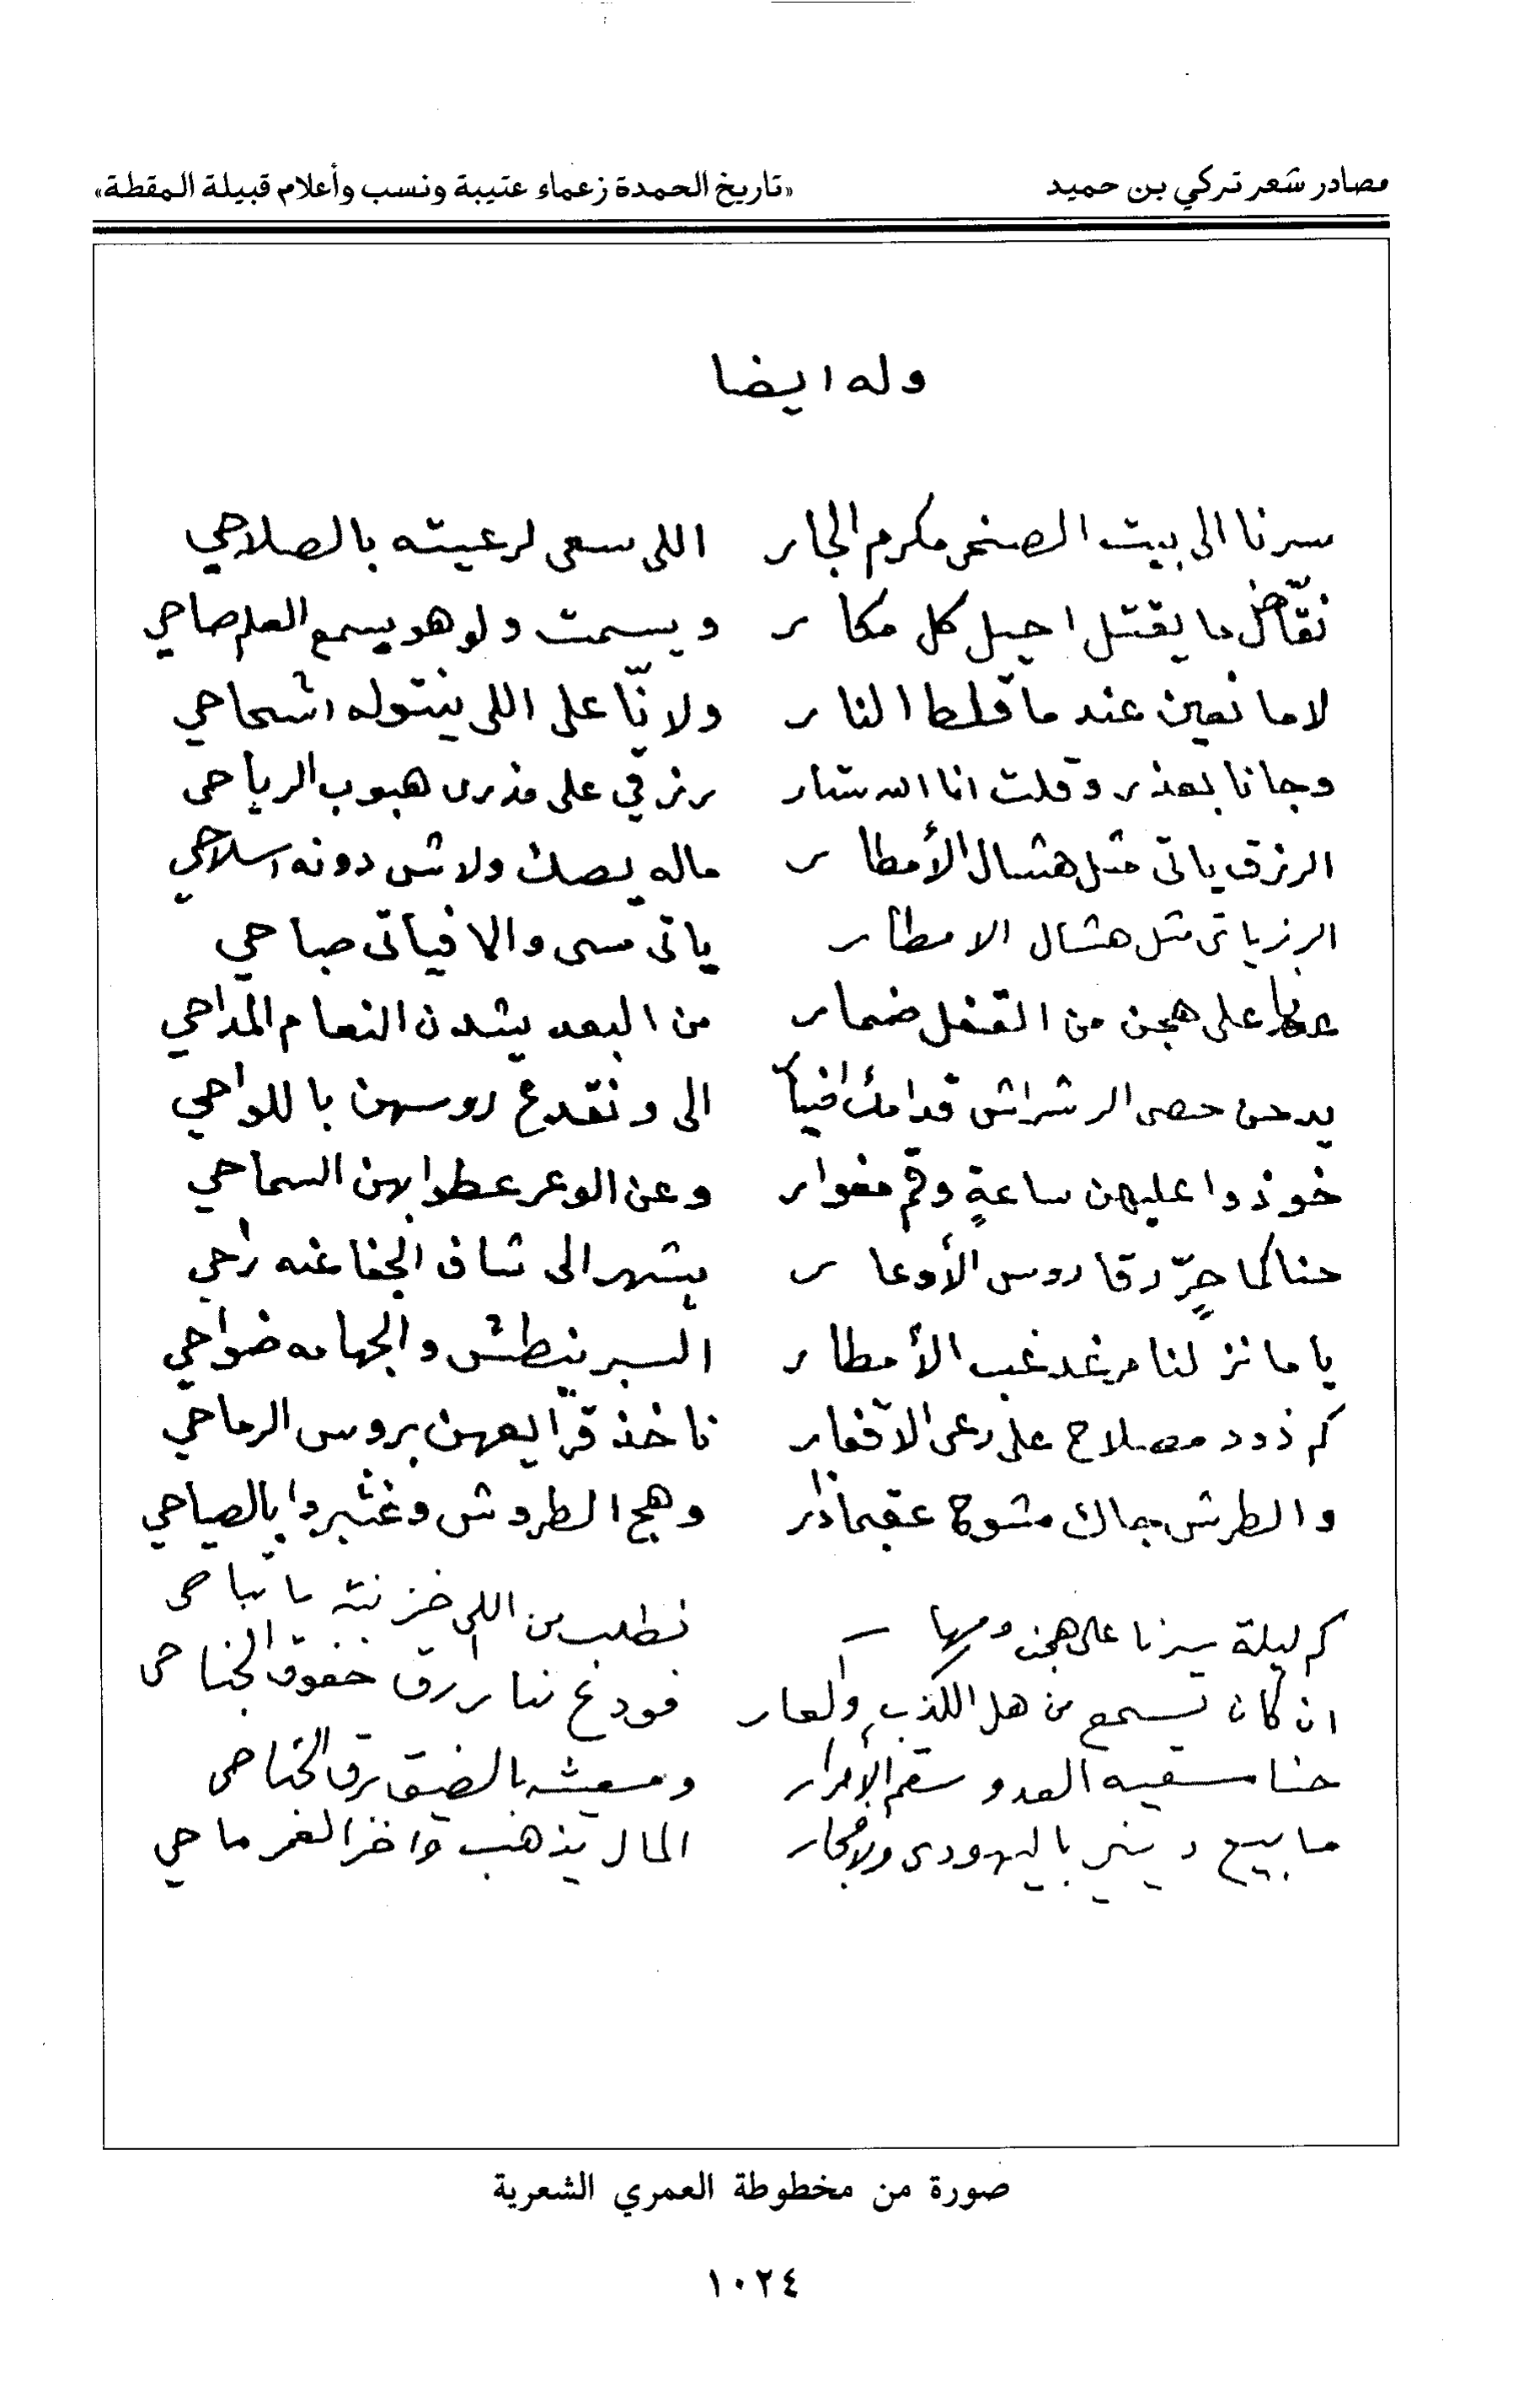 مصادر شعر تركي بن حميد «تاريخ الحمدة زعماء عتيبة ونسب وأعلام قبيلة المقطة»
وله ايضا
سرنا الى بيت الصنحر مكرم الجار اللى سعى لرعيته بالصلاحي
نقّاض ما يقتل احيل كل مكار ويسمت ولو هو يسمع العلم صاحي
لا ما نعين عند ما قلط النار ولا نّا على اللى ينتوله اشحاحي
وجانا بعذر وقلت انا الله ستار رزقي على مذرى هبوب الرياحى
الرزق ياتى مثل هشال الأمطار ماله يصك ولا ش دونه اسلاحي
الرز ياتى مثل هشال الامطار ياتى مسى والا فياتى صباحي
على هجن من القفل ضمار من البعد يشدن النعام المداحي
يدحن حصى الرشراش قدامك الى ونقدع روسهن باللواحي
خوذوا عليهن ساعةٍ وقم مغوار وعن الوعر عطوا بهن السماحي
حنا كما حِرّ رقا روس الأوعار يشهر الى شاف الجفا عنه زاحي
يا ما نزلنا مرغد غب الأمطار البسر ينطش والجهامه ضواحي
كم ذود مصلاح على رعى الاقفار ناخذ قرّايعهن بروس الرماحي
والطرش جاك مشوح عقبماذار وهج الطروش وغثبروا بالصياحي
كم ليلة سرنا على هجن ومهار نطلب من اللى خزنته ما تباحى
ان كان تسمع من هل الكذب والعار فودع تنا ررق خفوق الجناحى
حنا سقيه العدو سقم الأمرار ومعيشه بالضيق برق الجناحى
ما بيع ديني باليهودى ولافجار المال يذهب واخر العمر ماحي
صورة من مخطوطة العمري الشعرية
١٠٢٤